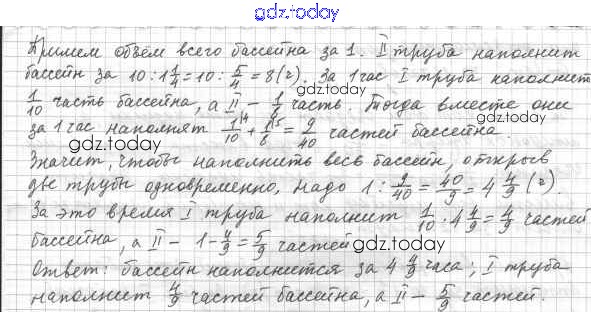 gdz.today
Примем объём всего бассейна за 1. II труба наполнит
бассейн за 10 : 1 1/4 = 10 : 5/4 = 8 (г). За 1 час I труба наполнит
gdz.today
1/10 часть бассейна, а II – 1/8 часть. Тогда вместе они
gdz.today
за 1 час наполнят 1/10 + 1/8 = 9/40 частей бассейна.
gdz.today
Значит, чтобы наполнить весь бассейн, открыв
две трубы одновременно, надо 1 : 9/40 = 40/9 = 4 4/9 (г).
За это время I труба наполнит 1/10 · 4 4/9 = 4/9 частей
бассейна, а II – 1 - 4/9 = 5/9 частей
gdz.today
Ответ: бассейн наполнится за 4 4/9 часа; I труба
наполнит 4/9 частей бассейна, а II – 5/9 частей.
gdz.today